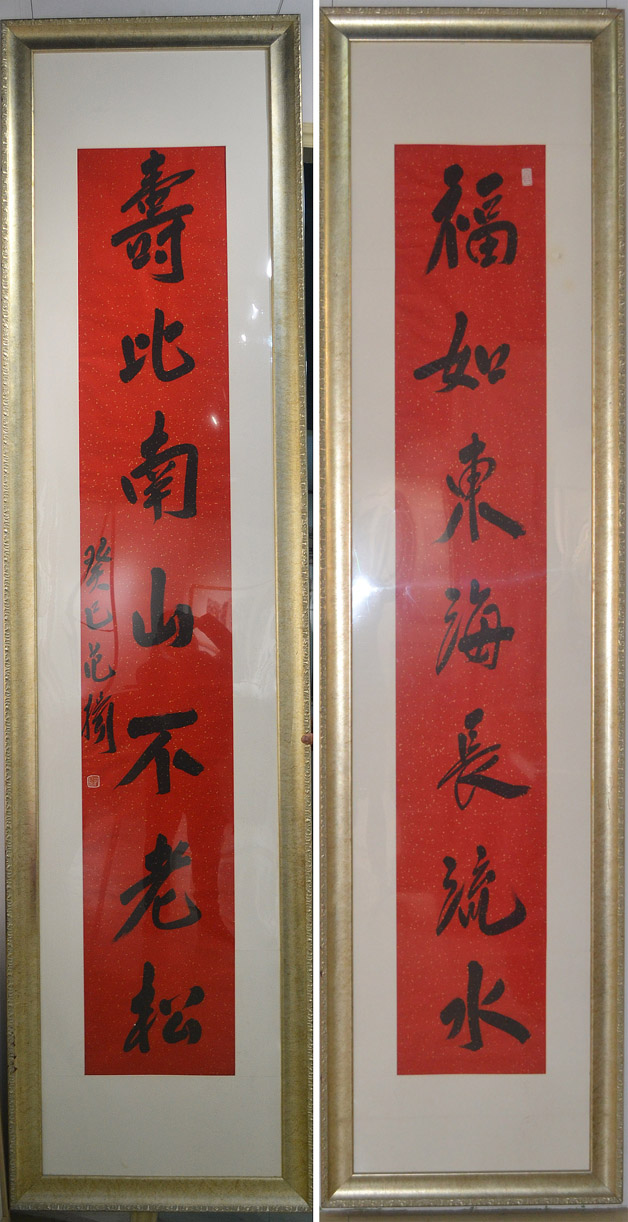 福如東海長流水
壽比南山不老松
癸巳范